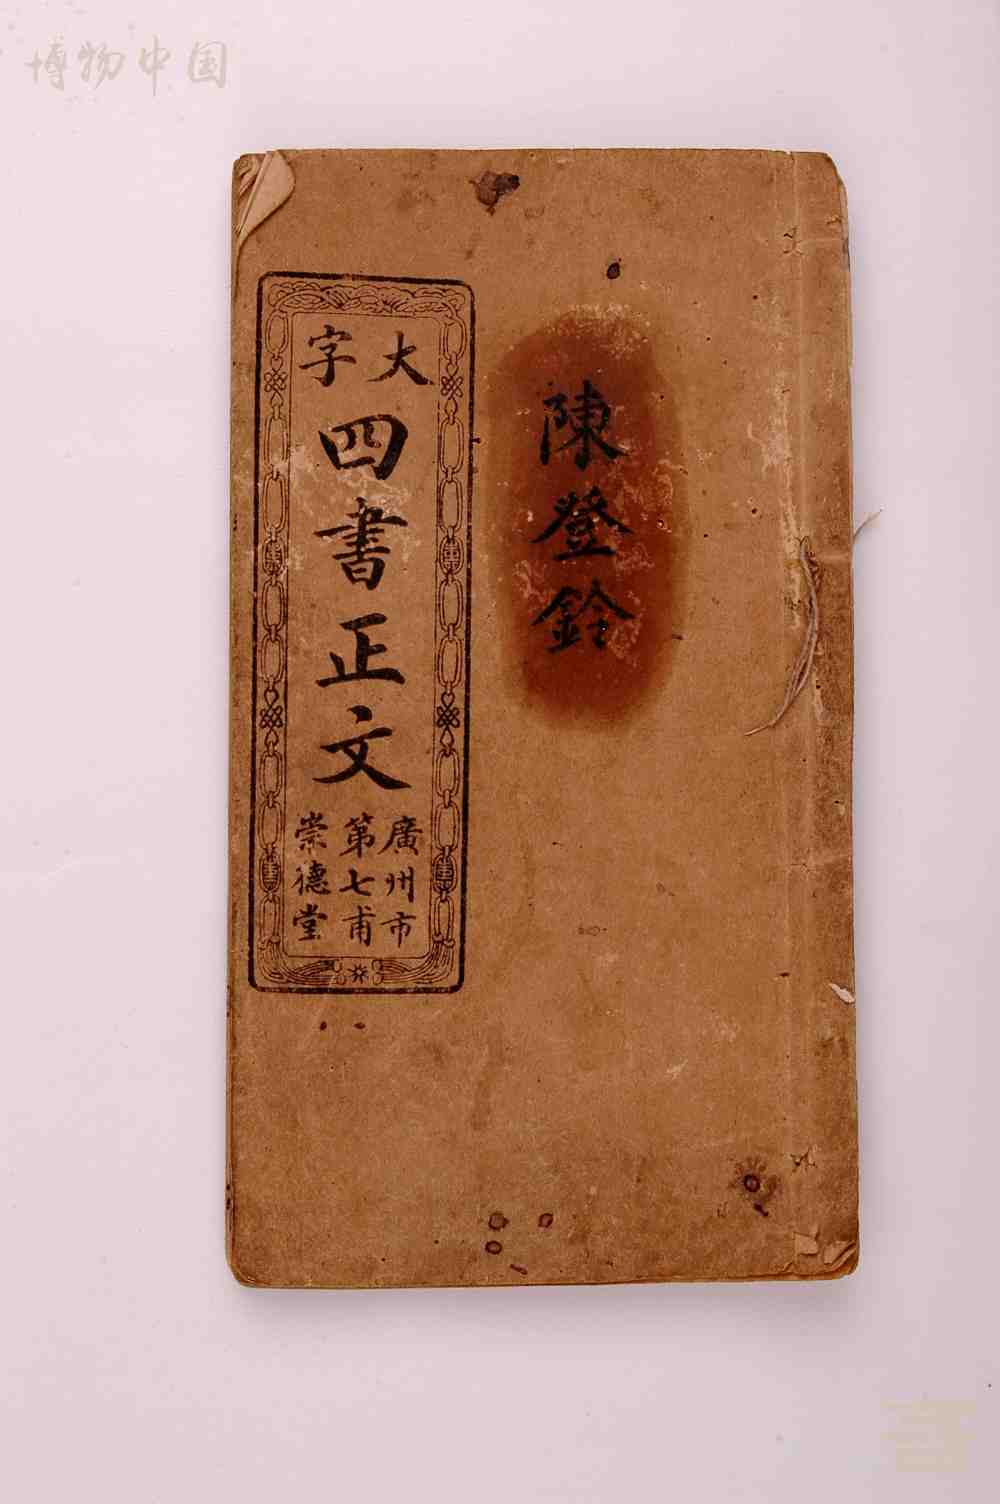 博物中国
陳登鈴
大字
四書正文
廣州市
第七甫
崇德堂